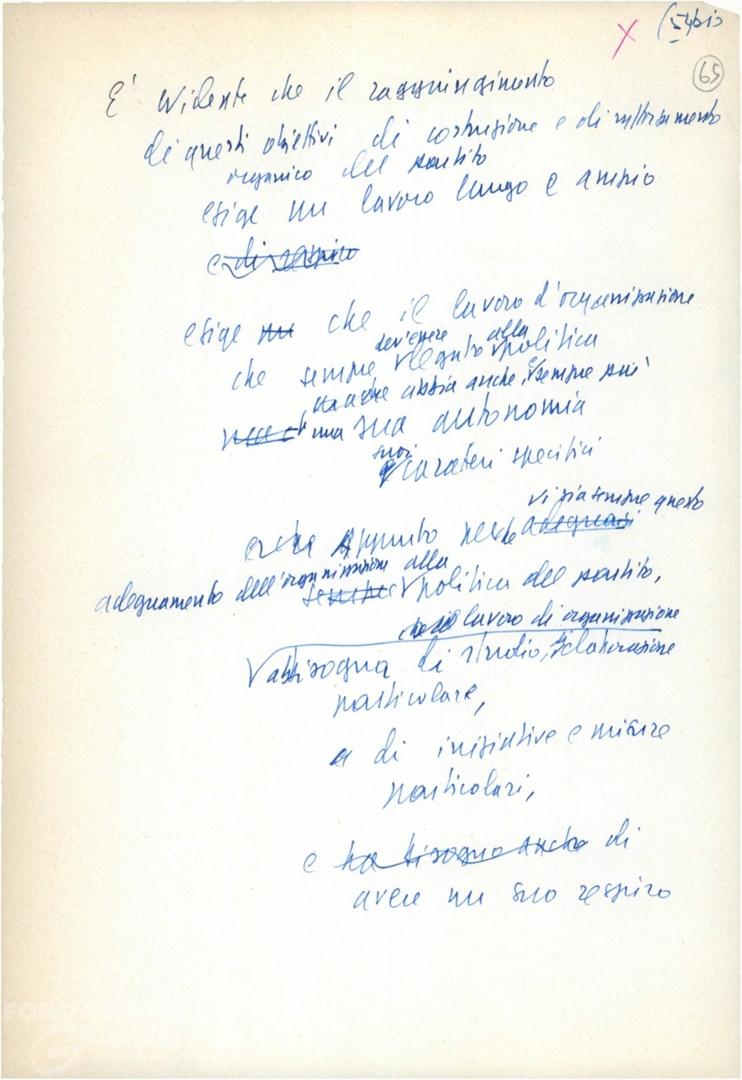 54 bis
65
E' evidente che il raggiungimento
di questi obiettivi di costruzione e di rafforzamento
organico del partito
esige un lavoro lungo e ampio
e di respiro
esige un che il lavoro d'organizzazione
dev'essere alla
che sempre legato politica
ma che abbia anche, e sempre più
una sua autonomia
suoi
caratteri specifici
vi sia sempre questo
e che appunto perché adeguasi
adeguamento dell'organizzazione alla
sempre politica del partito,
lavoro di organizzazione
abbisogna di studio, elaborazione
particolare,
e di iniziative e misure
particolari,
e ha bisogno anche di
avere un suo respiro